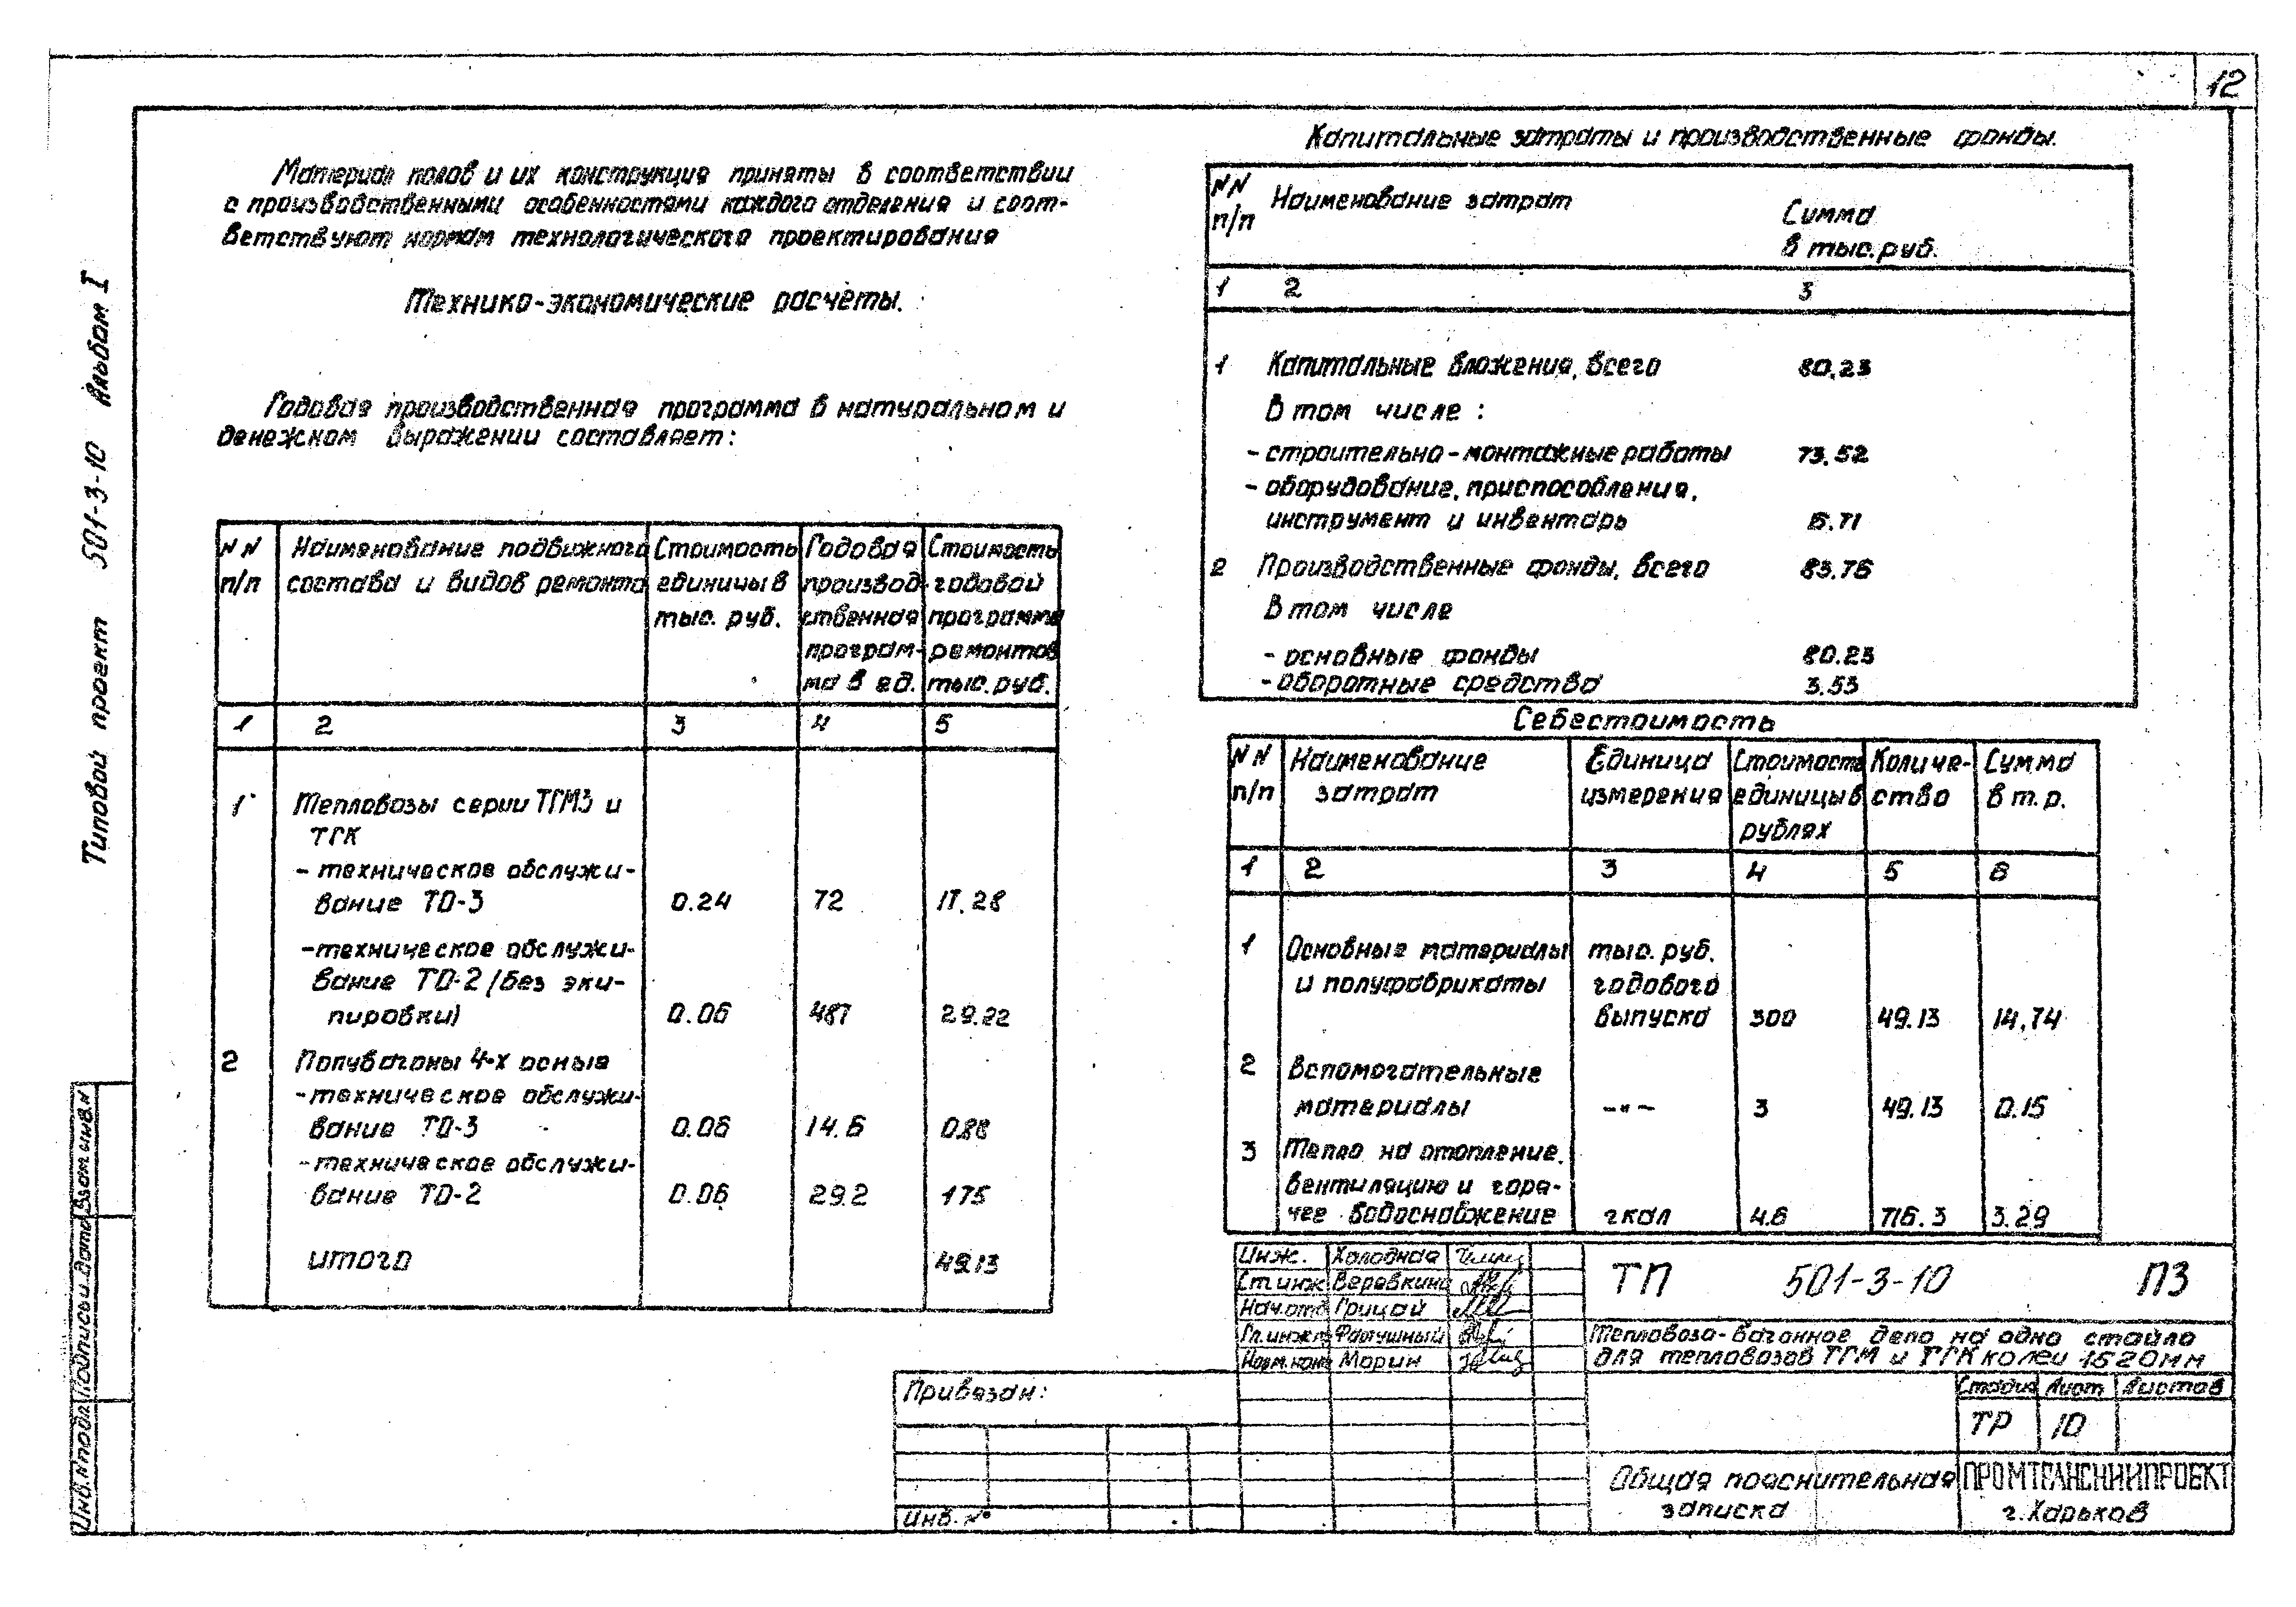 12
Материал полов и их конструкция приняты в соответствии
с производственными особенностями каждого отделения и соот-
ветствуют нормам технологического проектирования
Технико-экономические расчеты.
Годовая производственная программа в натуральном и
денежном выражении составляет:
NN п/п | Наименование подвижного состава и видов ремонта | Стоимость единицы в тыс. руб. | Годовая производ-ственная програм-ма в ед. | Стоимость годовой программы ремонтов тыс. руб.
1 2 3 4 5
1 Тепловозы серии ТГМ3 и
ТГК
- техническое обслужи-
вание ТО-3 0.24 72 17.28
- техническое обслужи-
вание ТО-2 /без эки-
пировки) 0.06 487 29.22
2 Полувагоны 4-х осные
- техническое обслужи-
вание ТО-3 0.06 14.6 0.88
- техническое обслужи-
вание ТО-2 0.06 29.2 175
итого 49.13
Капитальные затраты и производственные фонды.
NN п/п | Наименование затрат | Сумма в тыс. руб.
1 2 3
1 Капитальные вложения, всего 80,23
В том числе:
- строительно-монтажные работы 73.52
- оборудование, приспособления,
инструмент и инвентарь 6.71
2 Производственные фонды, всего 83.76
В том числе
- основные фонды 80.23
- оборотные средства 3.53
Себестоимость
NN п/п | Наименование затрат | Единица измерения | Стоимость единицы в рублях | Количе-ство | Сумма в т.р.
1 2 3 4 5 6
1 Основные материалы тыс. руб.
и полуфабрикаты годового
выпуска 300 49.13 14,74
2 Вспомогательные
материалы -"- 3 49.13 0.15
3 Тепло на отопление,
вентиляцию и горя-
чее водоснабжение гкал 4.6 716.3 3.29
Инж. Холодная
Ст.инж Веревкина
Нач.отд Грицай
Гл.инж.п Фатушный
Норм.конт Марин
ТП 501-3-10 ПЗ
Тепловозо-вагонное депо на одно стойло
для тепловозов ТГМ и ТГК колеи 1520мм
Стадия Лист Листов
ТР 10
Общая пояснительная
записка
ПРОМТРАНСНИИПРОЕКТ
г. Харьков
Привязан:
Инв. №
Типовой проект 501-3-10 Альбом I
Инв.N подл Подпись и дата Взам.инв.N